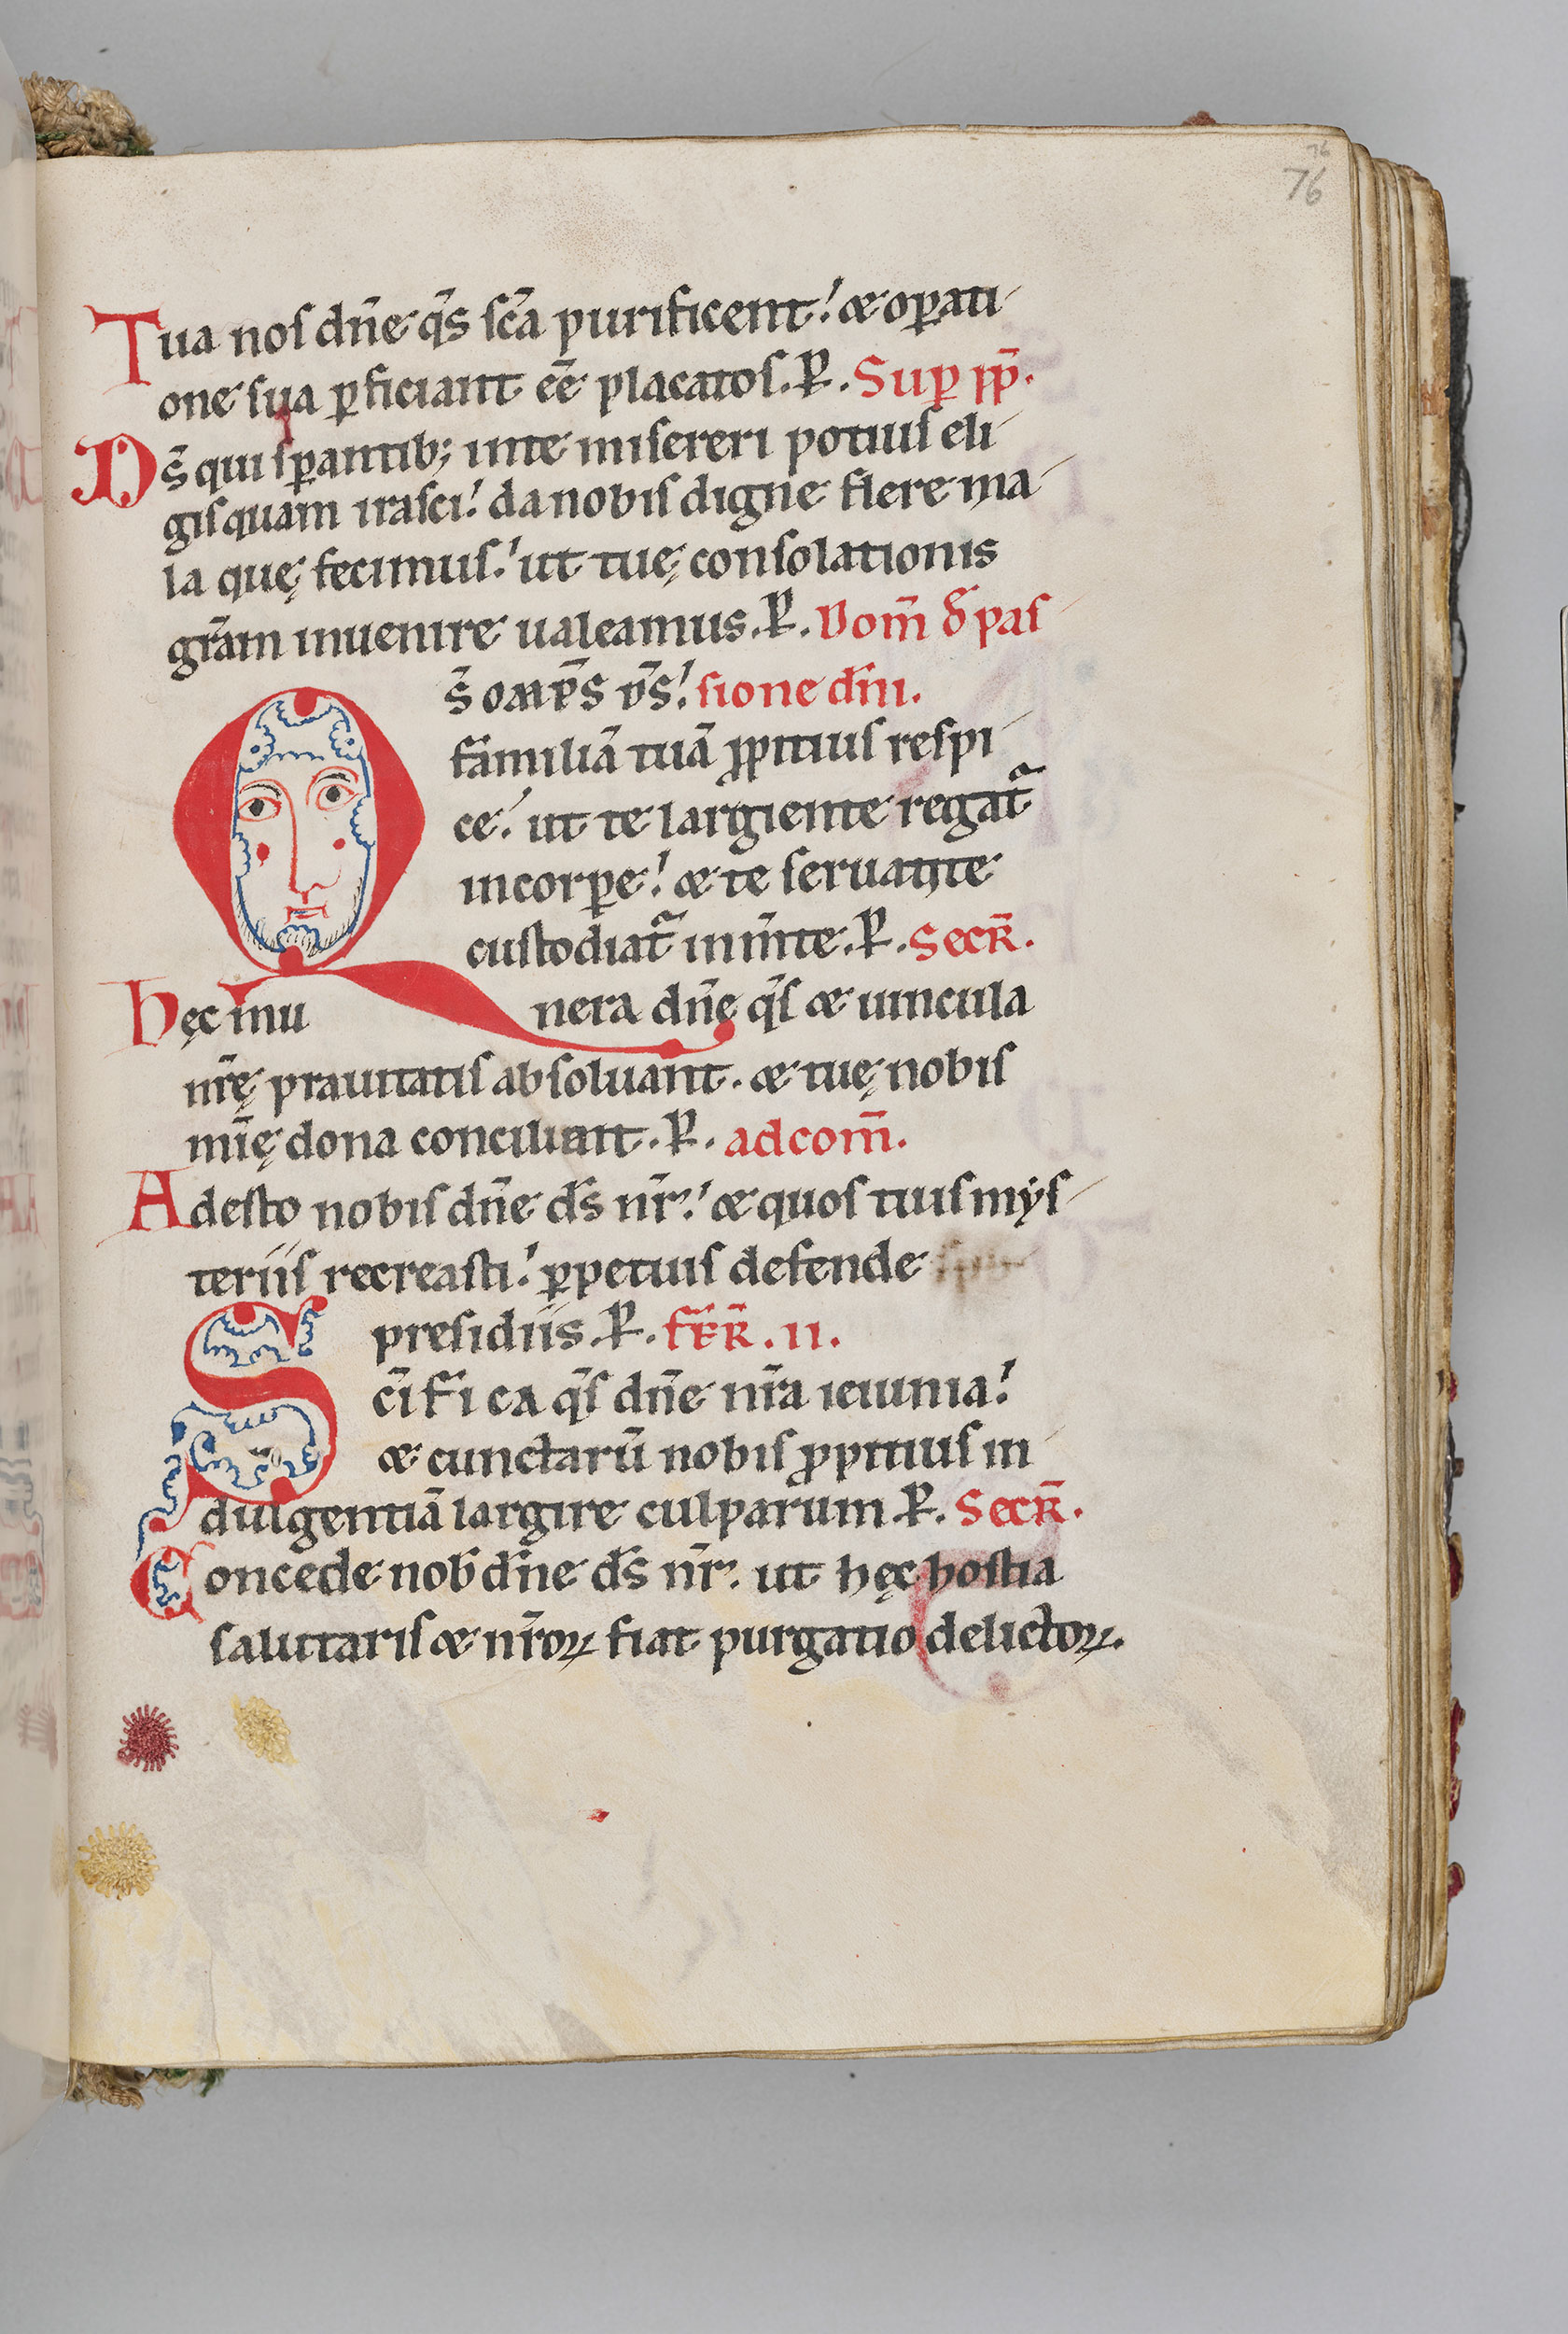 76
76
Tua nos dn̄e q̄s sc̄a purificent! & oꝑati
one sua ꝑficiant eē placatos. ꝶ. Suꝑ pp̄.
Ds̄ qui sꝑantib; inte misereri potius eli
gis quam irasci! da nobis digne flere ma
la quę fecimus! ut tuę consolationis
gr̄am inuenire ualeamus. ꝶ. Dom̄ d̄ pas
Qs̄ omp̄s ds̄! sione dn̄i.
familiā tuā ꝓpitius respi
ce! ut te largiente regat᷑
incorꝑe! & te seruante
custodiat᷑ inm̄te. ꝶ. Secr̄.
Hęc mu nera dn̄e q̄s & uincula
nr̄ę prauitatis absoluant. & tuę nobis
mīę dona concilient. ꝶ. ad com̄.
Adesto nobis dn̄e ds̄ nr̄! & quos tuis mẏs
teriis recreasti! ꝑpetuis defende
presidiis. ꝶ. fēr̄. ii.
Sc̄ifica q̄s dn̄e nr̄a ieiunia!
& cunctarū nobis ꝓpitius in
dulgentiā largire culparum ꝶ. Secr̄.
Concede nob̄ dn̄e ds̄ nr̄. ut hęc hostia
salutaris & nr̄oꝝ fiat purgatio delictoꝝ.